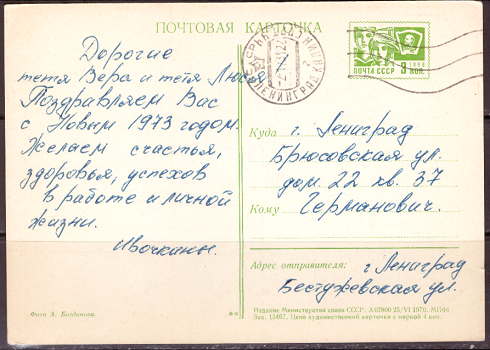 ПОЧТОВАЯ КАРТОЧКА
Дорогие
тетя Вера и тетя Люся
Поздравляем Вас
с Новым 1973 годом.
Желаем счастья,
здоровья, успехов
в работе и личной
жизни.
Ивочкины.
Фото А. Богданова.
**
ЛЕНИНГРАД
ПОЧТА СССР
1966
3 коп.
Куда г. Лениград
Брюсовская ул.
дом. 22 кв. 37
Кому Германович.
Адрес отправителя: г Лениград
Бестужевская ул.
Издание Министерства связи СССР. А 07800 25/VI 1970. МПФГ
Зак. 15467. Цена художественной карточки с маркой 4 коп.